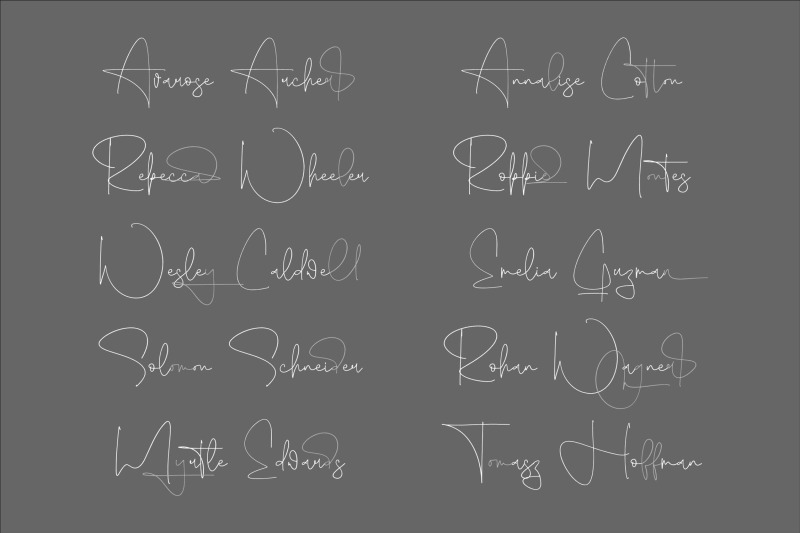 Avarose Archer Annalise Cotton
Rebecca Wheeler Robbie Montes
Wesley Caldwell Emelia Guzman
Solomon Schneider Rohan Wagner
Myrtle Edwards Tomasz Hoffman